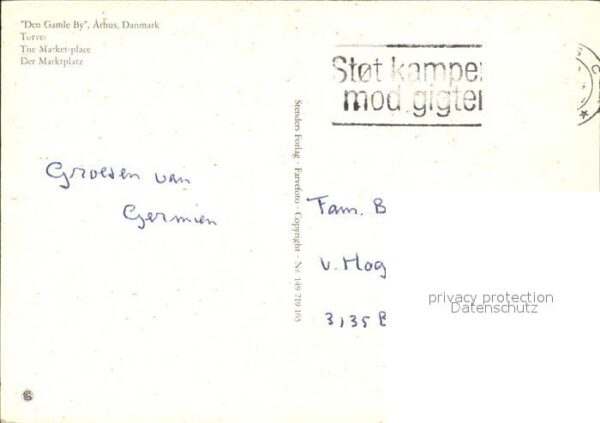 "Den Gamle By", Århus, Danmark
Torvet
The Market-place
Der Marktplatz
Støt kampen
mod gigten
Stenders Forlag - Farvefoto - Copyright - Nr. 149 719 165
Groeten van
Germien
Fam. B
v. Hog
3135 B
privacy protection
Datenschutz